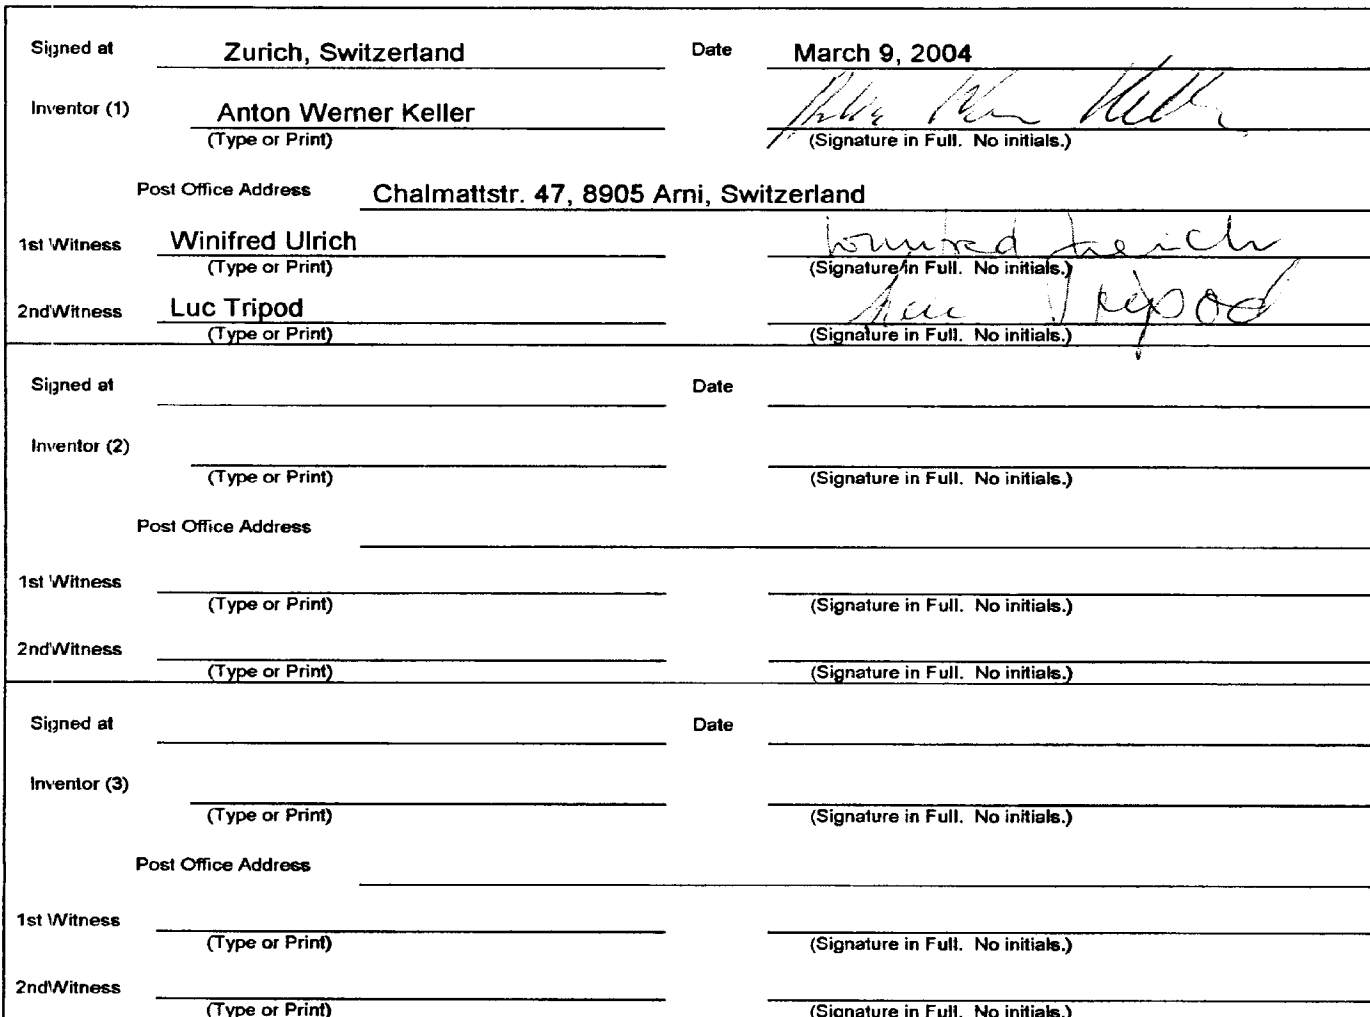 Signed at Zurich, Switzerland Date March 9, 2004
Inventor (1) Anton Werner Keller
(Type or Print) (Signature in Full. No initials.)
Post Office Address Chalmattstr. 47, 8905 Arni, Switzerland
1st Witness Winifred Ulrich Winifred Ulrich
(Type or Print) (Signature in Full. No initials.)
2nd Witness Luc Tripod Luc Tripod
(Type or Print) (Signature in Full. No initials.)
Signed at Date
Inventor (2)
(Type or Print) (Signature in Full. No initials.)
Post Office Address
1st Witness
(Type or Print) (Signature in Full. No initials.)
2nd Witness
(Type or Print) (Signature in Full. No initials.)
Signed at Date
Inventor (3)
(Type or Print) (Signature in Full. No initials.)
Post Office Address
1st Witness
(Type or Print) (Signature in Full. No initials.)
2nd Witness
(Type or Print) (Signature in Full. No initials.)